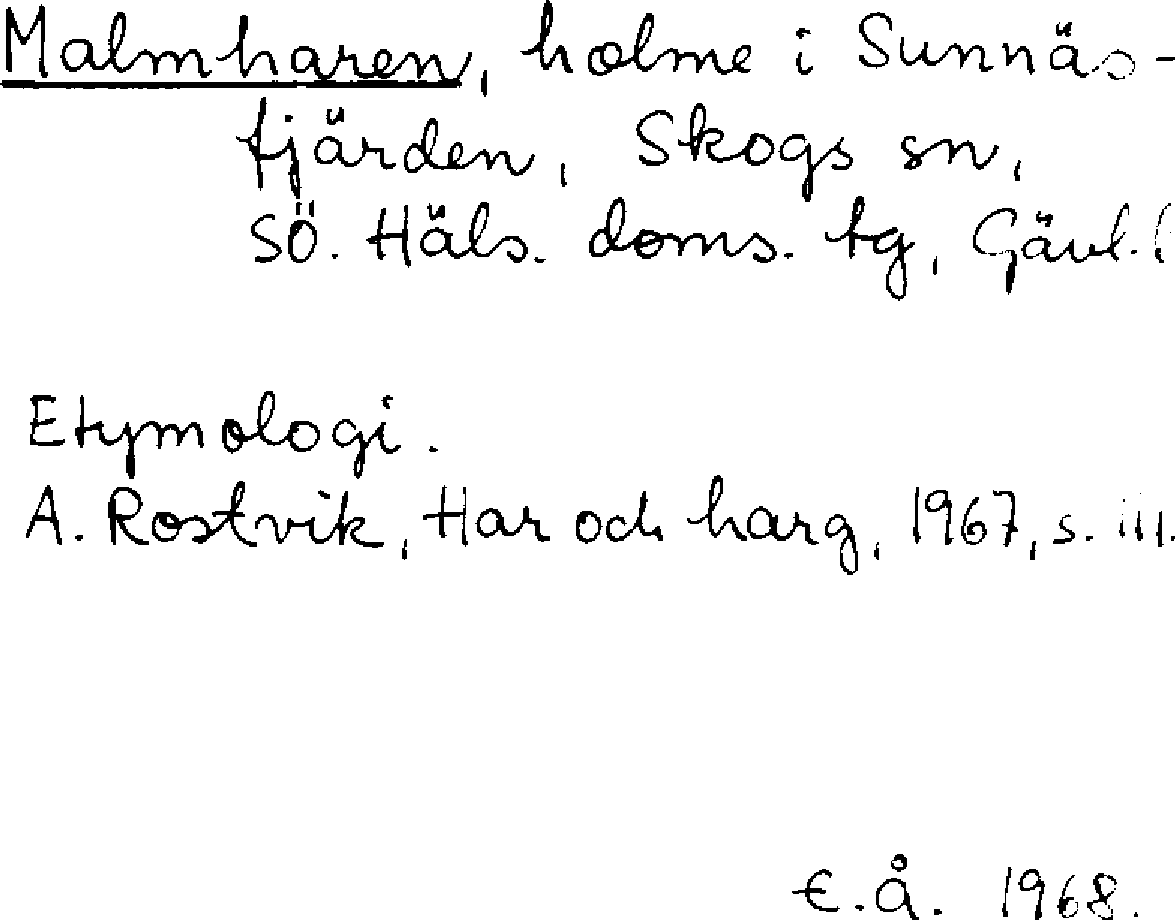 Malmharen, holme i Sunnäs-
fjärden, Skogs sn,
SÖ. Häls. doms. tg, Gävl. l
Etymologi.
A. Rostvik, Har och harg, 1967, s. 111.
E.Å. 1968.